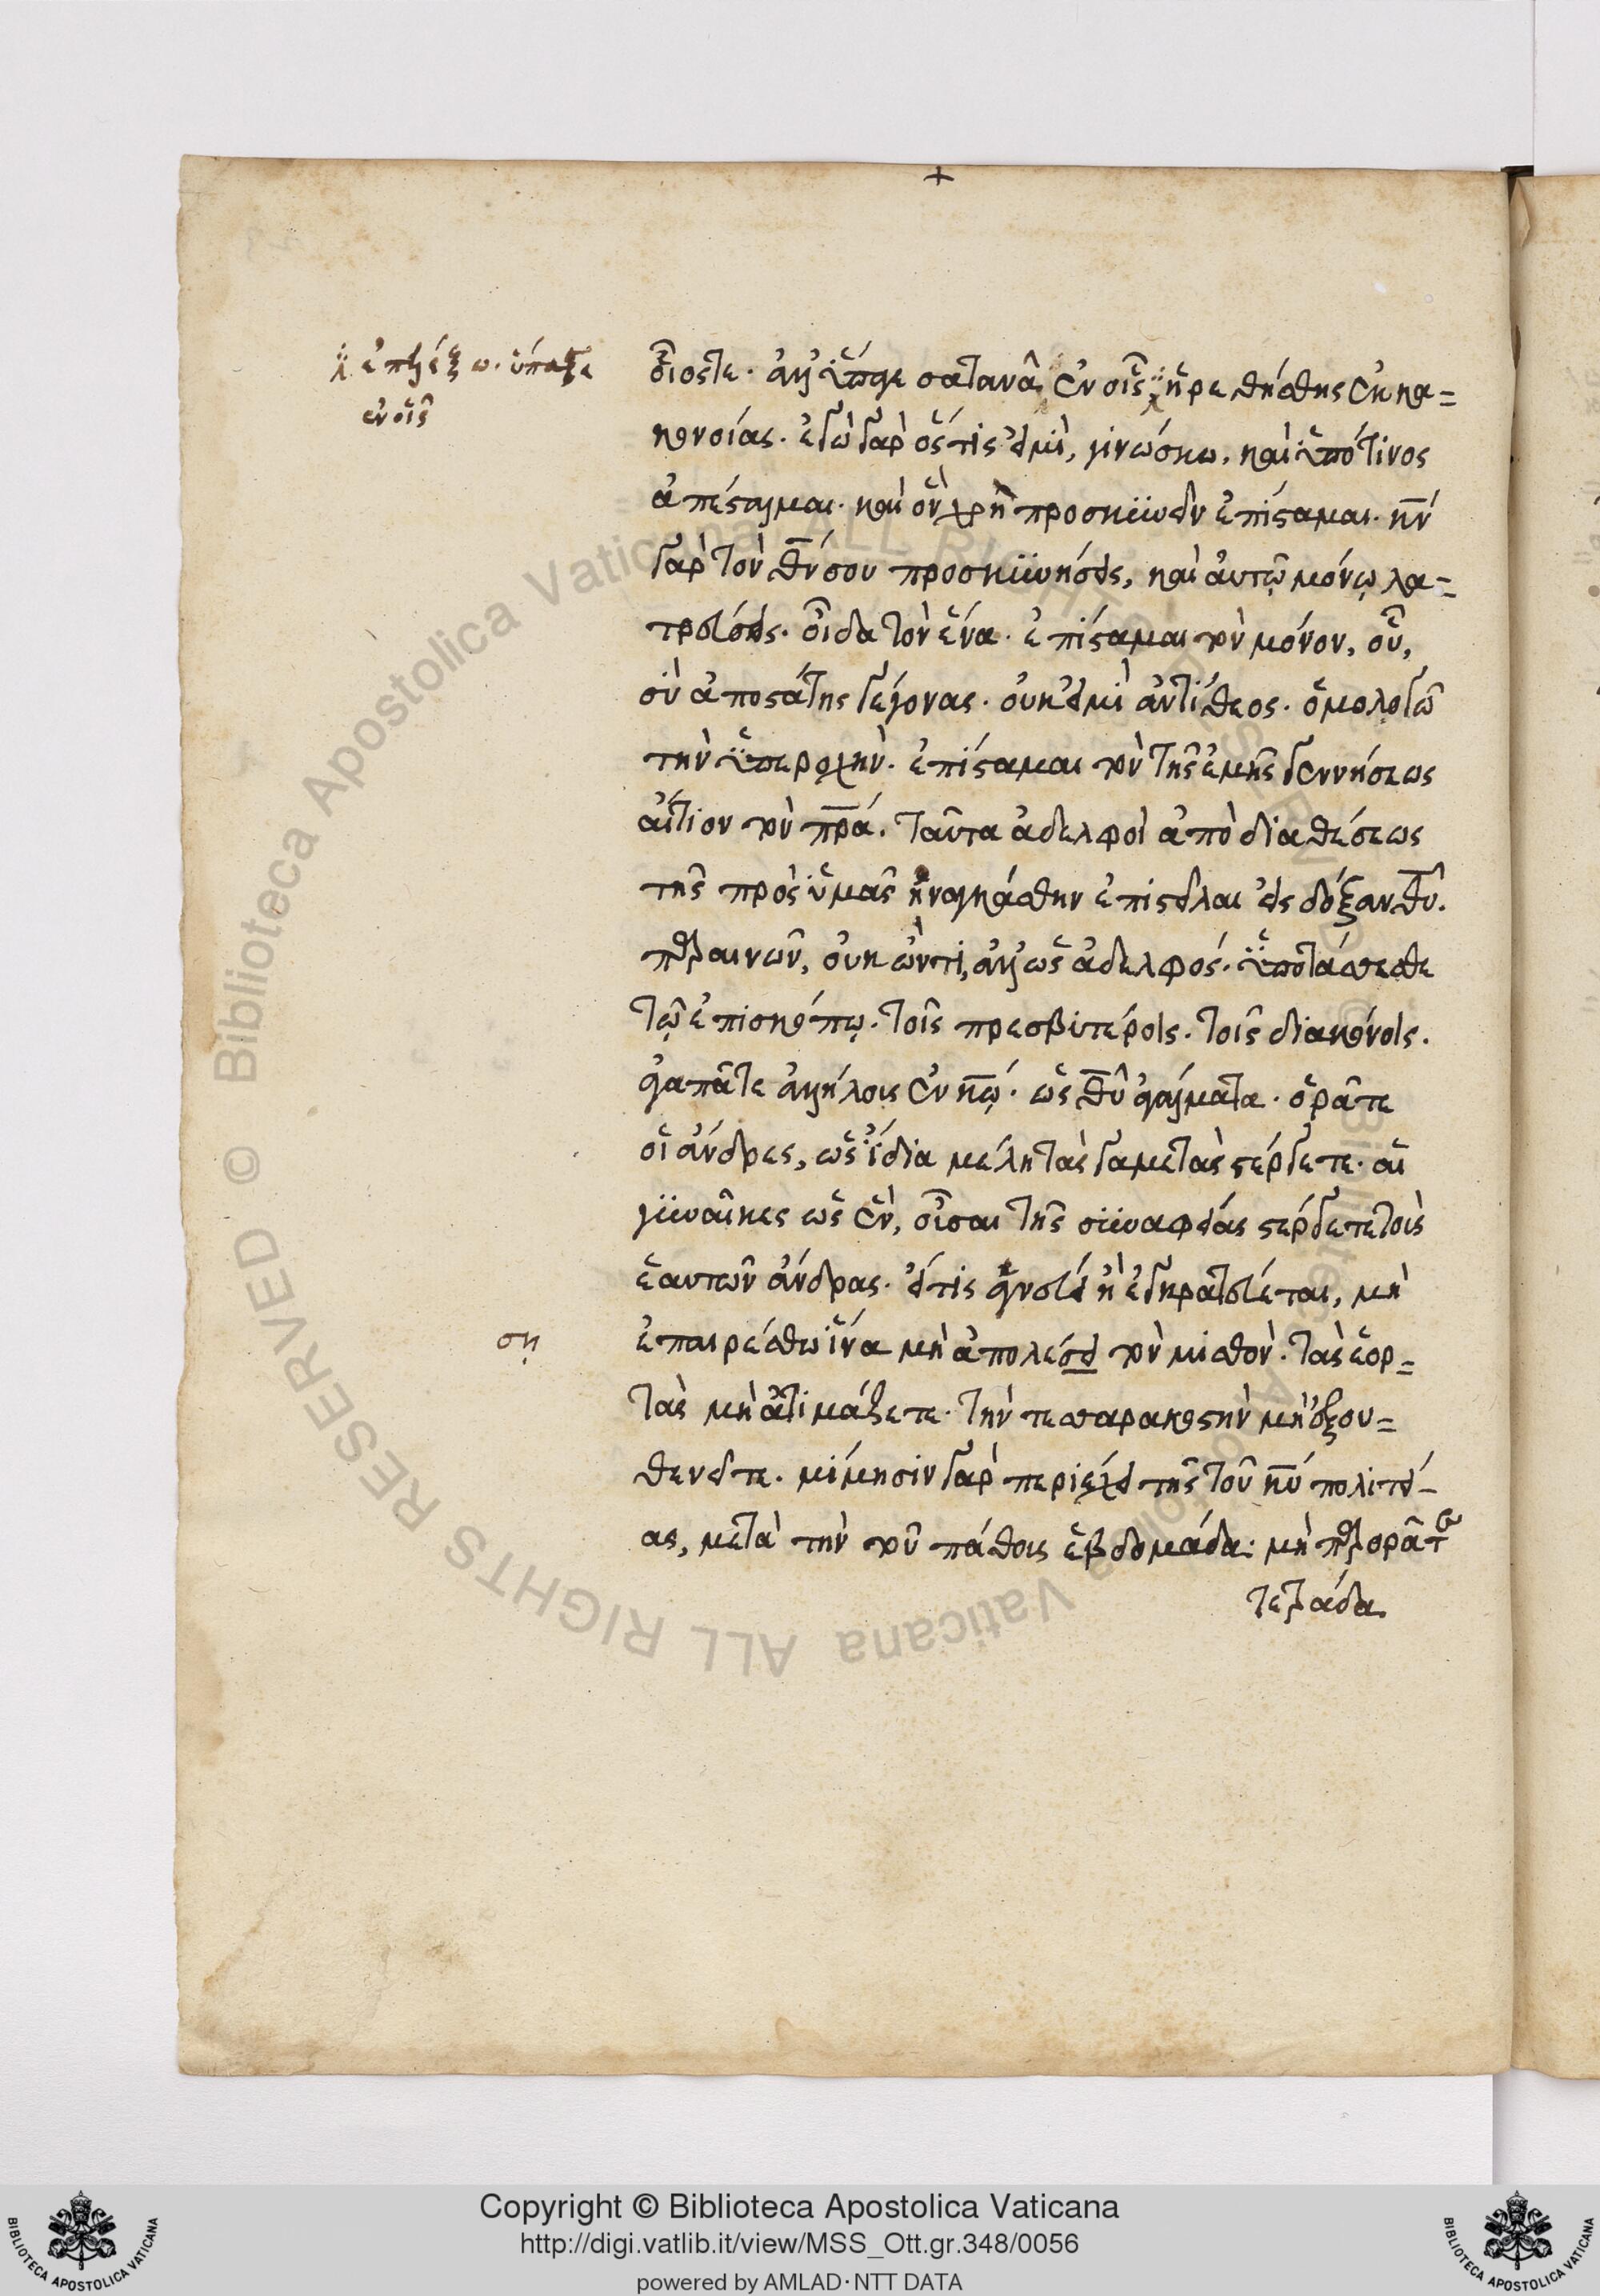 +
οἷός τε. ἀλλ' ὕπαγε σατανᾶ, ἐν οἷς ᾑρεθήσθης ἐκ κα=
κονοίας. ἐγὼ γὰρ ὅστις εἰμὶ, γινώσκω. καὶ ὑπό τινος
ἀπέσταλμαι. καὶ ὃν χρὴ προσκϋνεῖν ἐπίσταμαι. κ̅ν̅
γὰρ τὸν θ̅ν̅ σου προσκϋνήσεις, καὶ αὐτῷ μόνῳ λα=
τρεύσεις. οἶδα τὸν ἕνα. ἐπίσταμαι τὸν μόνον, οὗ,
σὺ ἀποστάτης γέγονας. οὐκ εἰμὶ ἀντίθεος. ὁμολογῶ
τὴν ὑπεροχὴν. ἐπίσταμαι τὸν τῆς ἐμῆς γεννήσεως
αἴτιον τὸν π̅ρ̅α̅. ταῦτα ἀδελφοὶ ἀπὸ διαθέσεως
τῆς πρὸς ὑμᾶς ἠναγκάσθην ἐπιστεῖλαι εἰς δόξαν θ̅υ̅.
παραινῶν, οὐκ ὤν τι, ἀλλ' ὡς ἀδελφός. ὑποτάσσεσθε
τῷ ἐπισκόπῳ. τοῖς πρεσβυτέροις. τοῖς διακόνοις.
ἀγαπᾶτε ἀλλήλους ἐν κ̅ω̅. ὡς θ̅υ̅ ἀγάλματα. ὁρᾶτε
οἱ ἄνδρες, ὡς ἴδια μέλη τὰς γαμετὰς στέργετε. αἱ
γϋναῖκες ὡς ἓν, οὖσαι τῆς σϋναφείας στέργετε τοὺς
ἑαυτῶν ἄνδρας. εἴ τις ἁγνεύει ἢ ἐγκρατεύεται, μὴ
ἐπαιρέσθω ἵνα μὴ ἀπολέσει τὸν μισθὸν. τὰς ἑορ=
τὰς μὴ ἀτιμάζετε. τὴν τεσσαρακοστὴν μὴ ἐξου=
θενεῖτε. μίμησιν γὰρ περιέχει τῆς τοῦ κ̅υ̅ πολιτεί-
ας, μετὰ τὴν τοῦ πάθους ἑβδομάδα. μὴ παρορᾶτε
τετράδα.
ὕπαγε
ἐν οἷς
ση
Copyright © Biblioteca Apostolica Vaticana
http://digi.vatlib.it/view/MSS_Ott.gr.348/0056
powered by AMLAD·NTT DATA
BIBLIOTECA APOSTOLICA VATICANA
BIBLIOTECA APOSTOLICA VATICANA
© Biblioteca Apostolica Vaticana ALL RIGHTS RESERVED
© Biblioteca Apostolica Vaticana ALL RIGHTS RESERVED